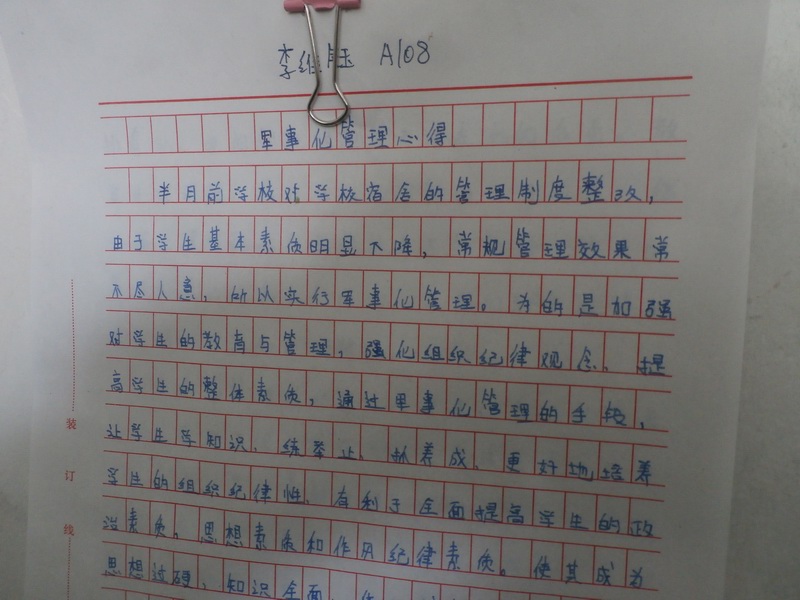 李维 A108
军事化管理心得
半月前学校对学校宿舍的管理制度整改，
由于学生基本素质明显下降，常规管理效果常
不尽人意，所以实行军事化管理。为的是加强
对学生的教育与管理，强化组织纪律观念、提
高学生的整体素质，通过军事化管理的手段，
让学生学知识、练举止、抓养成、更好地培养
学生的组织纪律性、有利于全面提高学生的政
治素质、思想素质和作风纪律素质。使其成为
思想过硬、知识全面、
装
订
线